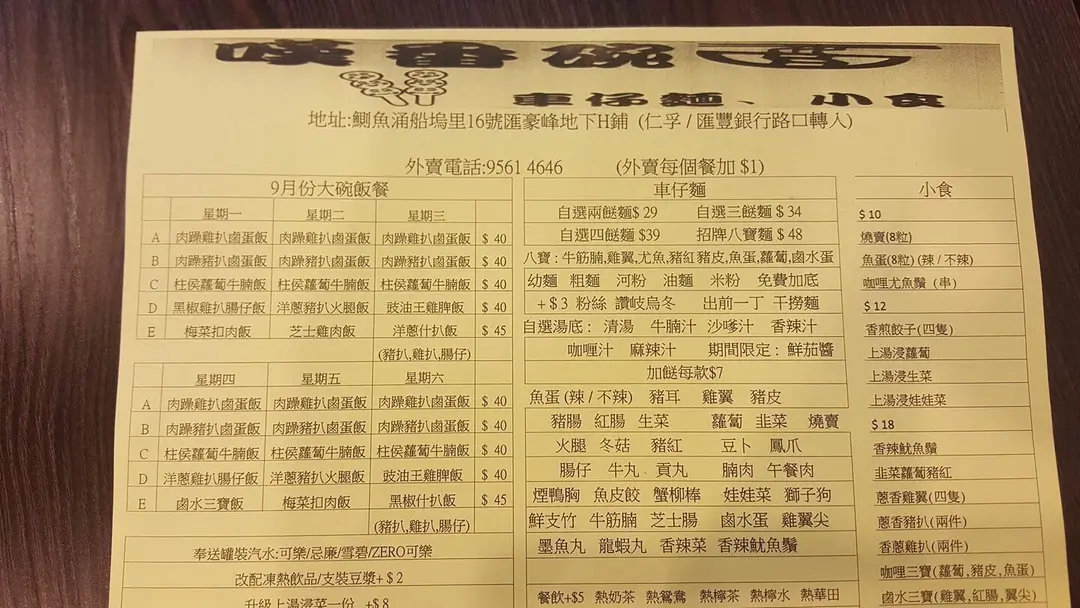 嘆番碗
車仔麵、小食
地址:鰂魚涌船塢里16號匯豪峰地下H鋪 (仁孚 / 匯豐銀行路口轉入)
外賣電話:9561 4646 (外賣每個餐加 $1)
9月份大碗飯餐
星期一 星期二 星期三
A 肉躁雞扒鹵蛋飯 肉躁雞扒鹵蛋飯 肉躁雞扒鹵蛋飯 $ 40
B 肉躁豬扒鹵蛋飯 肉躁豬扒鹵蛋飯 肉躁豬扒鹵蛋飯 $ 40
C 柱侯蘿蔔牛腩飯 柱侯蘿蔔牛腩飯 柱侯蘿蔔牛腩飯 $ 40
D 黑椒雞扒腸仔飯 洋蔥豬扒火腿飯 豉油王雞脾飯 $ 40
E 梅菜扣肉飯 芝士雞肉飯 洋蔥什扒飯 $ 45
(豬扒,雞扒,腸仔)
星期四 星期五 星期六
A 肉躁雞扒鹵蛋飯 肉躁雞扒鹵蛋飯 肉躁雞扒鹵蛋飯 $ 40
B 肉躁豬扒鹵蛋飯 肉躁豬扒鹵蛋飯 肉躁豬扒鹵蛋飯 $ 40
C 柱侯蘿蔔牛腩飯 柱侯蘿蔔牛腩飯 柱侯蘿蔔牛腩飯 $ 40
D 洋蔥雞扒腸仔飯 洋蔥豬扒火腿飯 豉油王雞脾飯 $ 40
E 鹵水三寶飯 梅菜扣肉飯 黑椒什扒飯 $ 45
(豬扒,雞扒,腸仔)
奉送罐裝汽水:可樂/忌廉/雪碧/ZERO可樂
改配凍熱飲品/支裝豆漿+ $ 2
升級上湯浸菜一份 +$ 8
車仔麵
自選兩餸麵$ 29 自選三餸麵 $ 34
自選四餸麵 $39 招牌八寶麵 $ 48
八寶 : 牛筋腩,雞翼,尤魚,豬紅豬皮,魚蛋,蘿蔔,鹵水蛋
幼麵 粗麵 河粉 油麵 米粉 免費加底
+ $ 3 粉絲 讚岐烏冬 出前一丁 干撈麵
自選湯底 : 清湯 牛腩汁 沙嗲汁 香辣汁
咖喱汁 麻辣汁 期間限定 : 鮮茄醬
加餸每款$7
魚蛋 (辣 / 不辣) 豬耳 雞翼 豬皮
豬腸 紅腸 生菜 蘿蔔 韭菜 燒賣
火腿 冬菇 豬紅 豆卜 鳳爪
腸仔 牛丸 貢丸 腩肉 午餐肉
煙鴨胸 魚皮餃 蟹柳棒 娃娃菜 獅子狗
鮮支竹 牛筋腩 芝士腸 鹵水蛋 雞翼尖
墨魚丸 龍蝦丸 香辣菜 香辣魷魚鬚
餐飲+$5 熱奶茶 熱鴛鴦 熱檸茶 熱檸水 熱華田
小食
$ 10
燒賣(8粒)
魚蛋(8粒) (辣 / 不辣)
咖哩尤魚鬚 (串)
$ 12
香煎餃子(四隻)
上湯浸蘿蔔
上湯浸生菜
上湯浸娃娃菜
$ 18
香辣魷魚鬚
韭菜蘿蔔豬紅
蔥香雞翼(四隻)
蔥香豬扒(兩件)
香蔥雞扒(兩件)
咖哩三寶(蘿蔔,豬皮,魚蛋)
鹵水三寶(雞翼,紅腸,翼尖)